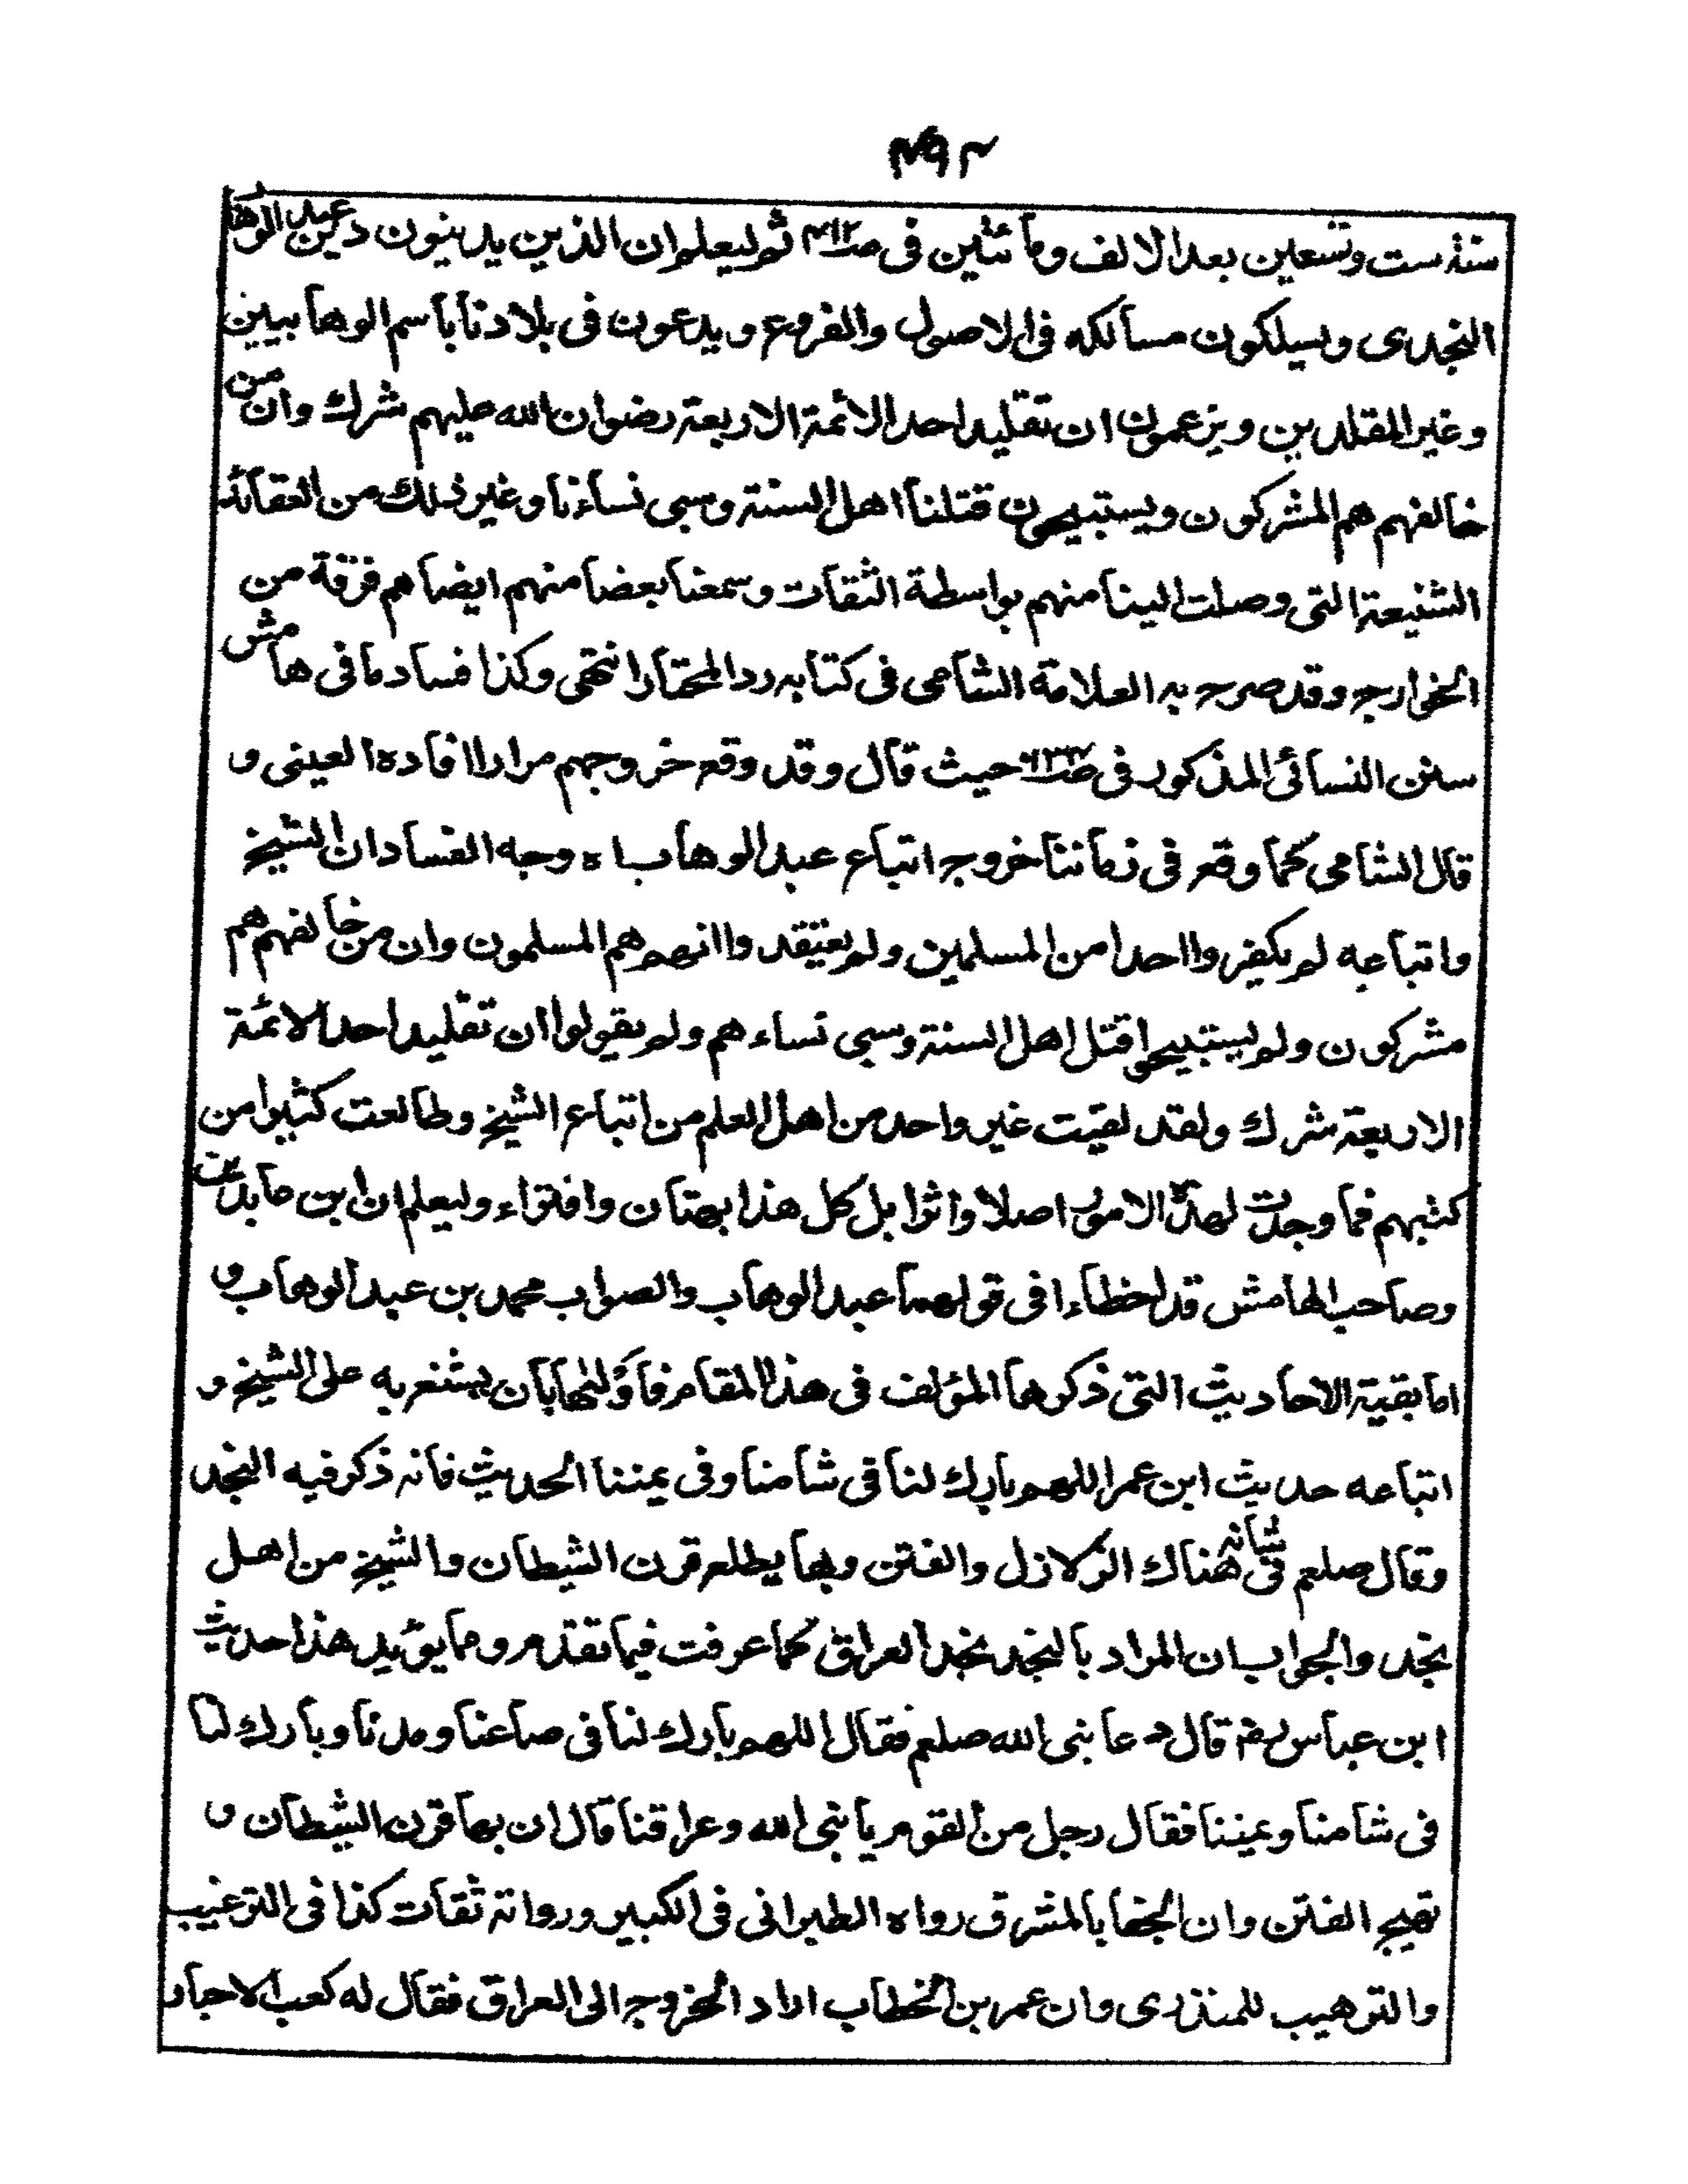 ٤٩٣
سنة ست وتسعين بعد الالف ومأتين فى ص٣١٢ ثم ليعلم ان الذين يدينون دين عبد الوها
النجدى ويسلكون مسألكه فى الاصول والفروع ويدعون فى بلادنا باسم الوهابيين
وغير المقلدين ويزعمون ان تقليد احد الائمة الاربعة رضوان الله عليهم شرك وان من
خالفهم هم المشركون ويستبيحون قتلنا اهل السنة وسبى نساءنا وغير ذلك من العقائد
الشنيعة التى وصلت الينا منهم بواسطة الثقات وسمعنا بعضا منهم ايضا هم فرقة من
الخوارج وقد صرح به العلامة الشامى فى كتابه رد المحتار انتهى وكذا فساد ما فى هامش
سنن النسائى المذكور فى حيث قال وقد وقع خروجهم مرارا افاده العينى و
قال الشامى كما وقع فى زماننا خروج اتباع عبد الوهاب اه وجه الفساد ان الشيخ
واتباعه لم يكفروا احدا من المسلمين ولم يعتقدوا انهم هم المسلمون وان من خالفهم هم
مشركون ولم يستبيحوا قتل اهل السنة وسبى نساءهم ولم يقولوا ان تقليد احد الائمة
الاربعة شرك ولقد لقيت غير واحد من اهل العلم من اتباع الشيخ وطالعت كثيرا من
كتبهم فما وجدت لهذه الامور اصلا واثرا بل كل هذا بهتان وافتراء وليعلم ان ابن عابدين
وصاحب الهامش قد اخطاءا فى قولهما عبد الوهاب والصواب محمد بن عبد الوهاب و
اما بقية الاحاديث التى ذكرها المؤلف فى هذا المقام فاؤلها بان يشعر به على الشيخ و
اتباعه حديث ابن عمر اللهم بارك لنا فى شامنا وفى يمننا الحديث فانه ذكر فيه النجد
وقال صلعم فى شانه هناك الزلازل والفتن وبها يطلع قرن الشيطان والشيخ من اهل
نجد والجواب ان المراد بالنجد نجد العراق كما عرفت فيما تقدم ومما يؤيد هذا حديث
ابن عباس رض قال دعا نبى الله صلعم فقال اللهم بارك لنا فى صاعنا ومدنا وبارك لنا
فى شامنا ويمننا فقال رجل من القوم يا نبى الله وعراقنا قال ان بها قرن الشيطان و
تهيج الفتن وان الجفا بالمشرق رواه الطبرانى فى الكبير ورواته ثقات كذا فى الترغيب
والترهيب للمنذرى وان عمر بن الخطاب اراد الخروج الى العراق فقال له كعب الاحبار